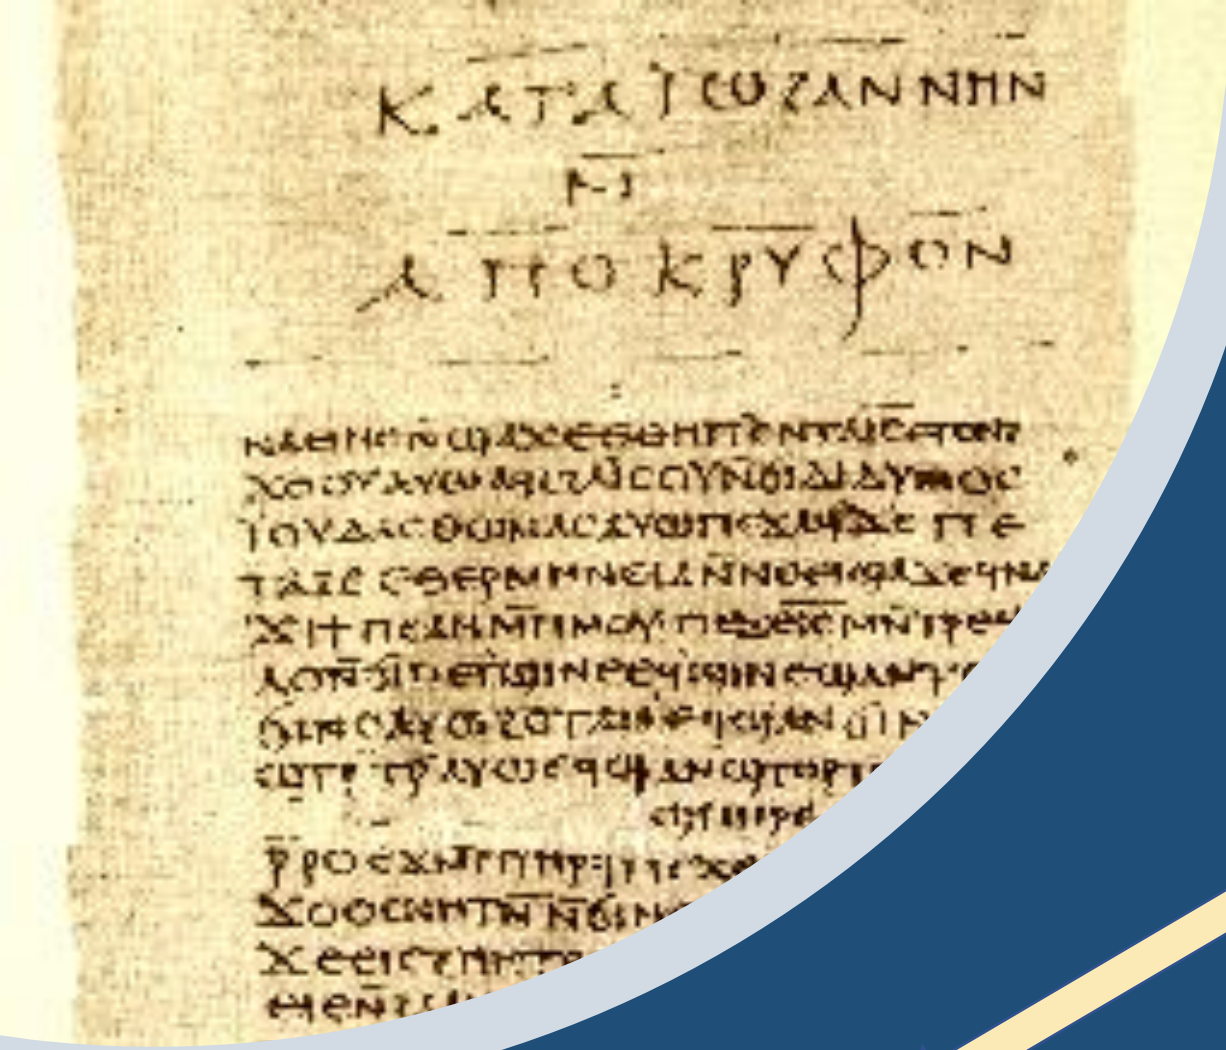 ⲕⲁⲧⲁ ⲓⲱϩⲁⲛⲛⲏⲛ
ⲛ̄
ⲁⲡⲟⲕⲣⲩⲫⲟⲛ
ⲛⲁⲉⲓ ⲛⲉ ⲛ̄ϣⲁϫⲉ ⲉⲑⲏⲡ ⲉⲛⲧⲁⲓ̅ⲥ̅ ⲉⲧⲟⲛϩ
ϫⲟⲟⲩ ⲁⲩⲱ ⲁϥⲥϩⲁⲓ̈ⲥⲟⲩ ⲛ̄ϭⲓ ⲇⲓⲇⲩⲙⲟⲥ
ⲓ̈ⲟⲩⲇⲁⲥ ⲑⲱⲙⲁⲥ ⲁⲩⲱ ⲡⲉϫⲁϥ ϫⲉ ⲡⲉ
ⲧⲁϩⲉ ⲉⲑⲉⲣⲙⲏⲛⲉⲓⲁ ⲛ̄ⲛⲉⲉⲓϣⲁϫⲉ ϥⲛⲁ
ϫⲓ ϯⲡⲉ ⲁⲛ ⲙ̄ⲡⲙⲟⲩ ⲡⲉϫⲉ ⲓ̅ⲥ̅ ⲙⲛ̄ⲧⲣⲉϥ
ⲗⲟ ⲛ̄ϭⲓ ⲡⲉⲧϣⲓⲛⲉ ⲉϥϣⲓⲛⲉ ϣⲁⲛⲧ
ϭⲓⲛⲉ ⲁⲩⲱ ϩⲟⲧⲁⲛ ⲉϥϣⲁⲛϭⲓⲛ
ϣⲧⲣ̄ⲧⲣ̄ ⲁⲩⲱ ⲉϥϣⲁⲛϣⲧⲟⲣⲧ
ϣⲡⲏⲣⲉ
ⲣ̄ⲣⲟ ⲉϫⲙ̄ ⲡⲧⲏⲣϥ ⲡⲉϫⲉ
ϫⲟⲟⲥ ⲛⲏⲧⲛ̄ ⲛ̄ϭⲓ ⲛ
ϫⲉ ⲉⲓⲥϩⲏⲏⲧⲉ